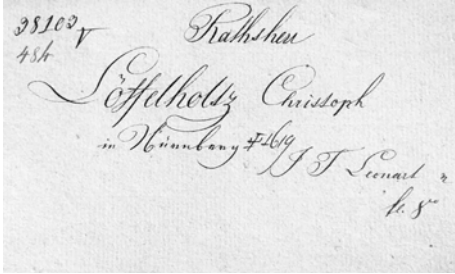 38102 V
48h
Rathsherr
Löffelholtz Christoph
in Nürnberg ‡1619
J F Leonart
fl. 8°